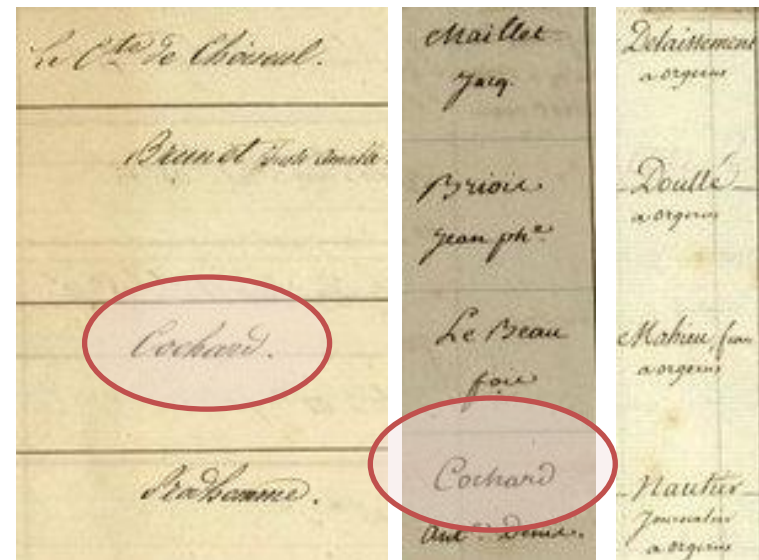 Le Cte de Choiseul.
Brunet
Cochard.
Prudhomme.
Maillet
Jacq.
Briois
Jean phe
Le Beau
Cochard
Ant. Denis.
Delaissement
a orgerus
Doullé
a orgerus
Mahieu, fran
a orgerus
Nautier
Journalier
a orgerus